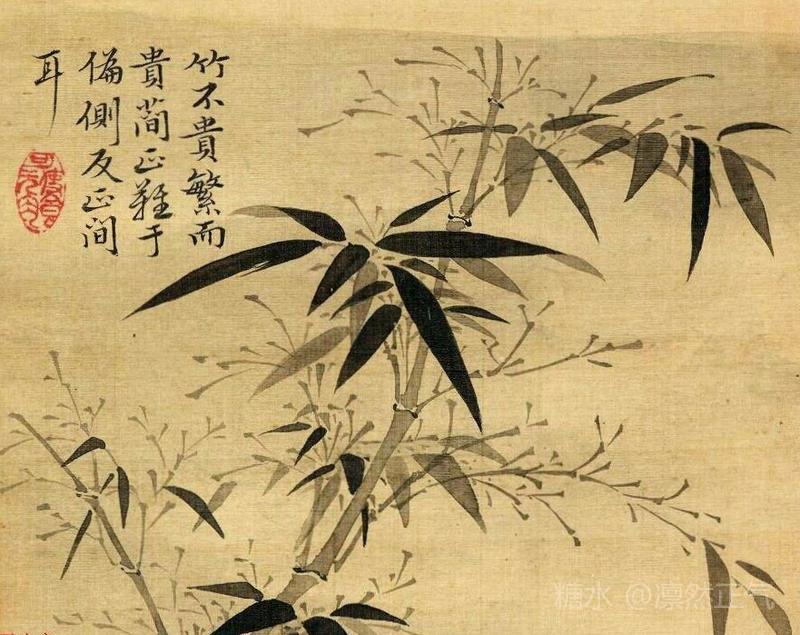 竹不貴繁而
貴蕳正難于
偏側反正間
耳
糖水 @凛然正气